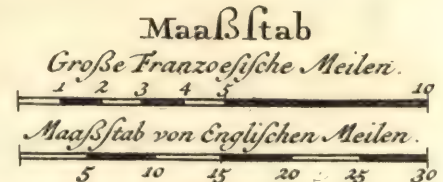 Maaßſtab
Große Franzoeſiſche Meilen.
1 2 3 4 5 10
Maaßſtab von Engliſchen Meilen.
5 10 15 20 25 30